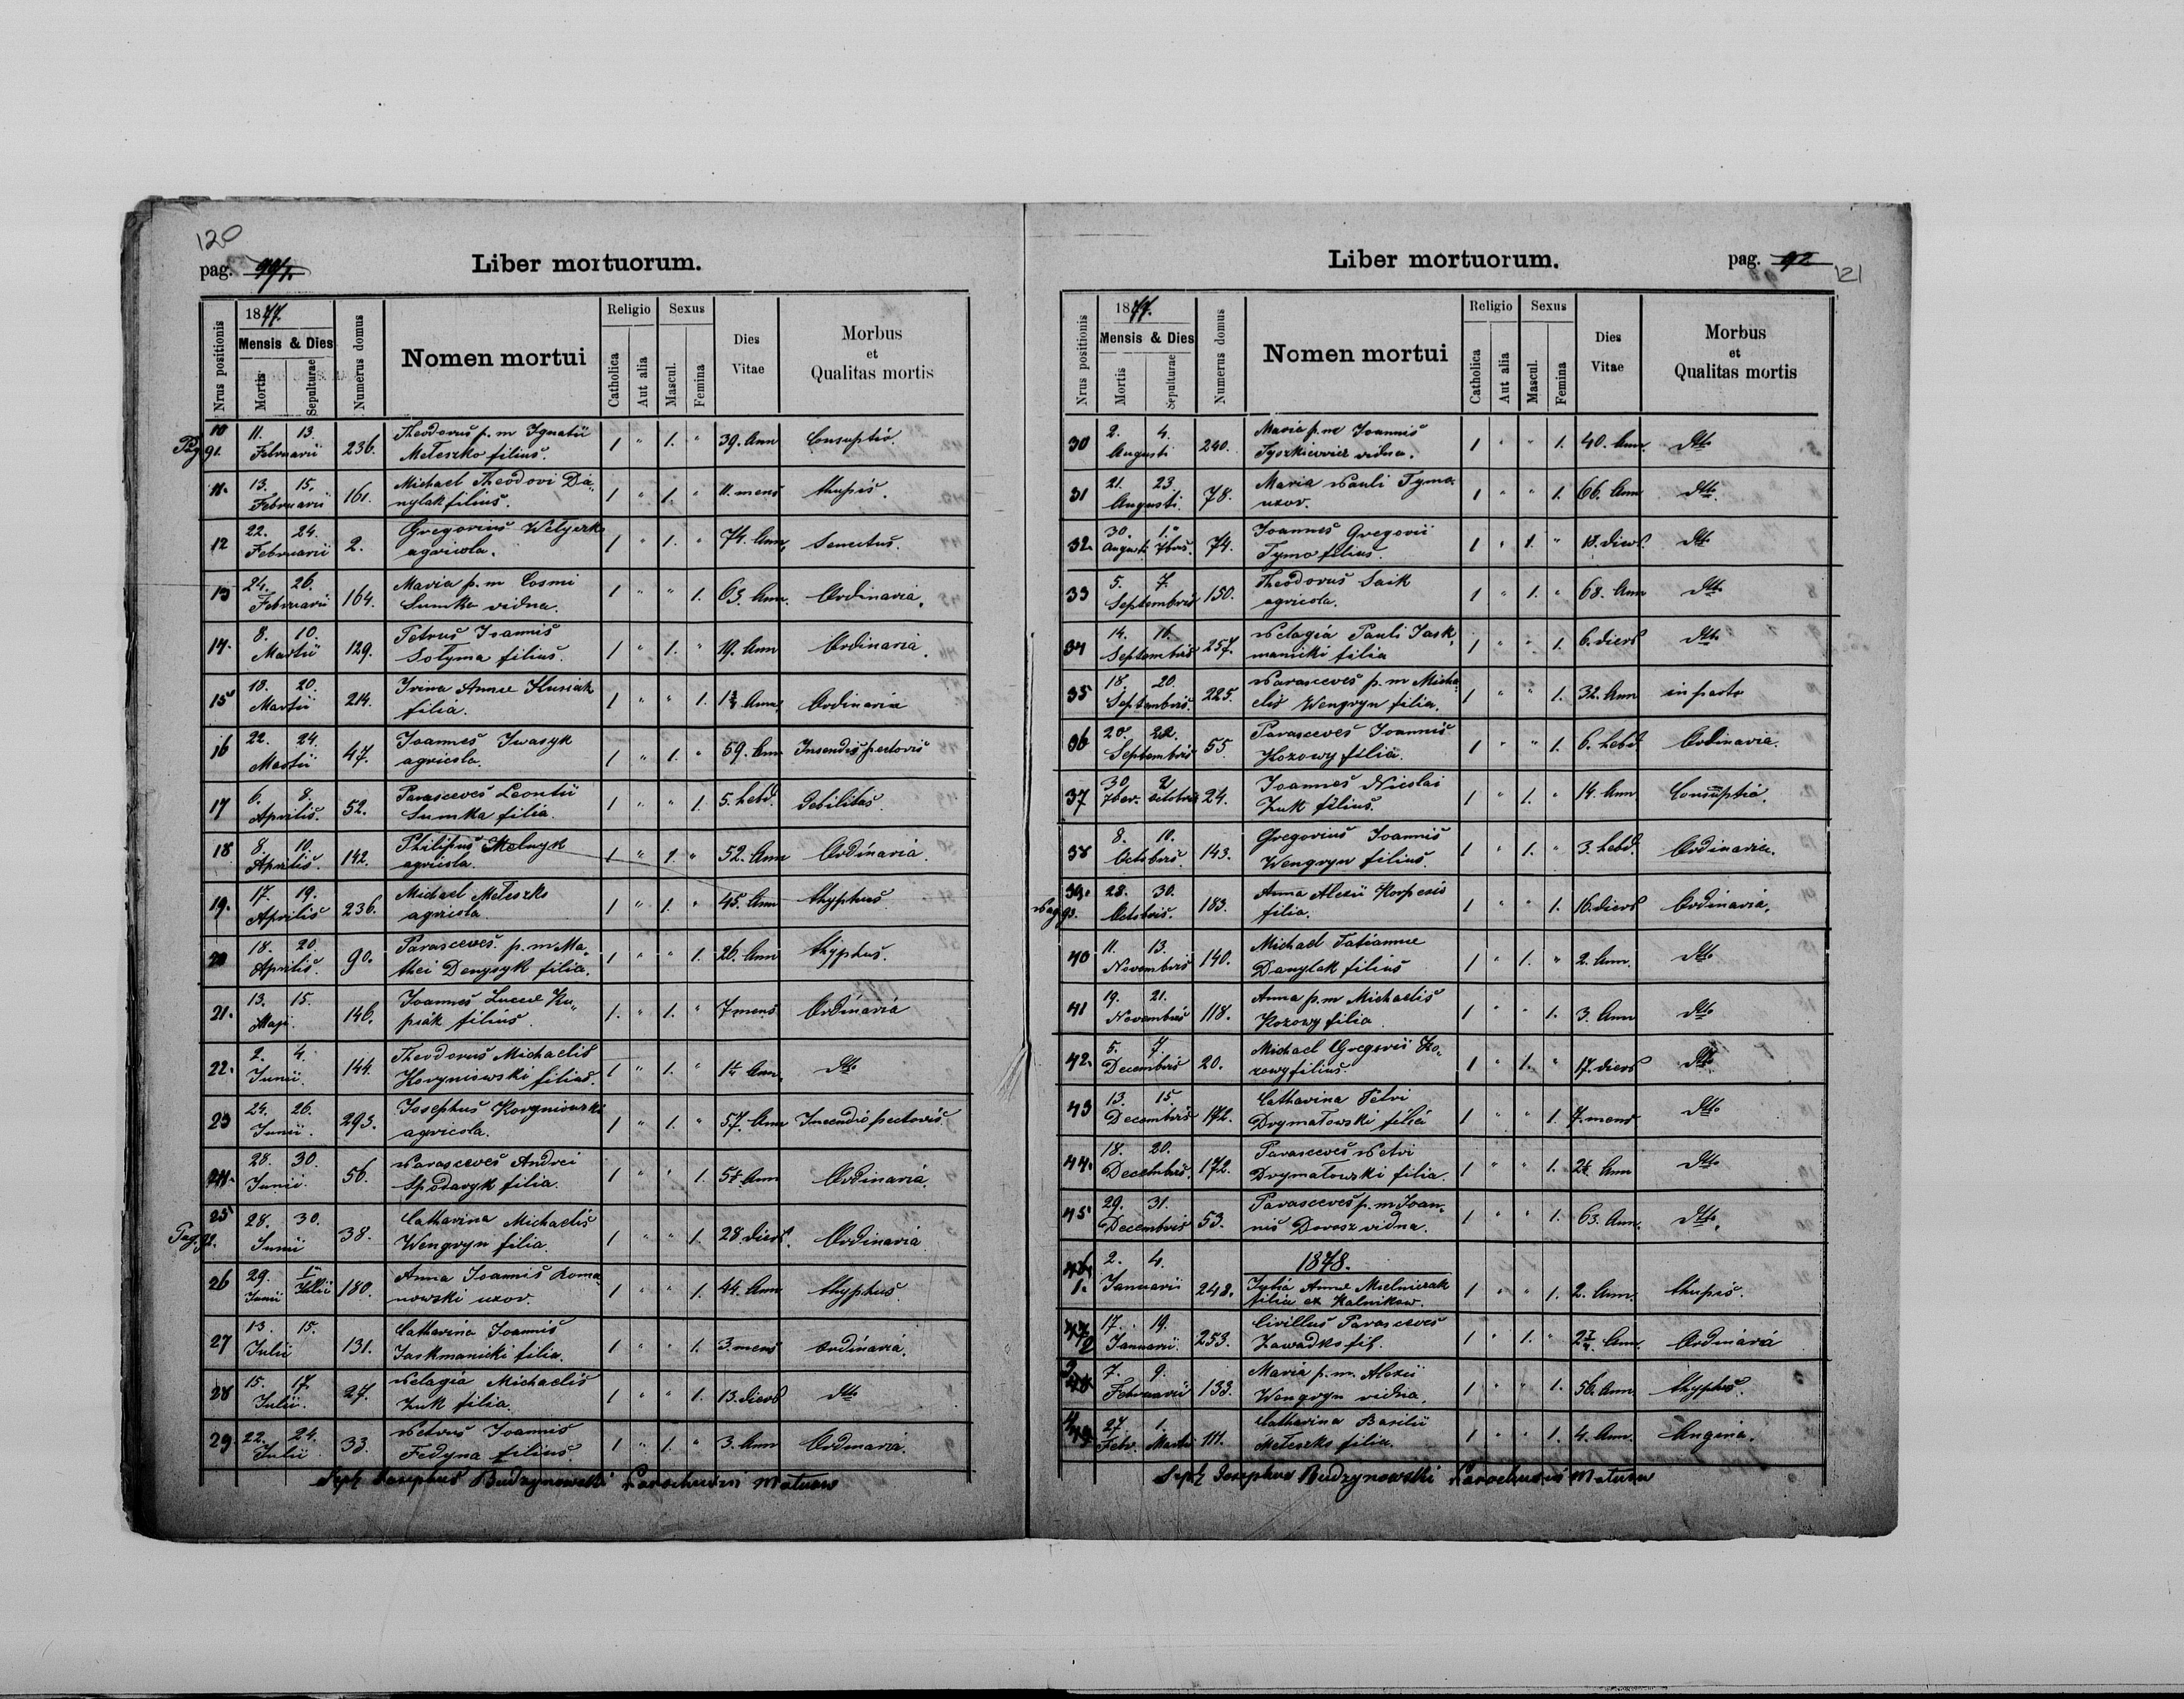 120
pag. 99/1.
Liber mortuorum.
Nrus positionis
1877.
Mensis & Dies
Mortis
Sepulturae
Numerus domus
Nomen mortui
Religio
Catholica
Aut alia
Sexus
Mascul.
Femina
Dies
Vitae
Morbus
et
Qualitas mortis
Pag 91.
10 11. 13. Februarii 236. Theodorus p. m Ignatii 1 " 1. " 39. Ann Consuptio.
Meteszko filius.
11. 13. 15. Februarii 161. Michael Theodori Da- 1 " 1. " 11. mens thupis.
nylak filius.
12 22. 24. Februarii 2. Gregorius Welyczko 1 " 1. " 74. Ann. Senectus.
agricola.
13 24. 26. Februarii 164. Maria p. m Cosmi 1 " " 1. 63. Ann. Ordinaria.
Sumka vidua.
14. 8. 10. Martii 129. Petrus Joannis 1 " 1. " 19. Ann Ordinaria.
Sołyma filius.
15 18. 20. Martii 214. Irina Annae Husiak 1 " " 1. Ann. Ordinaria
filia.
16 22. 24. Martii 47. Joannes Iwasyk 1 " 1. " 59. Ann Insendis pectoris
agricola.
17 6. 8. Aprilis. 52. Parasceves Leontii 1 " " 1. 5. hebd. debilitas.
Sumka filia.
18 8. 10. Aprilis. 142. Philipus Melnyk 1 " 1. " 52. Ann Ordinaria.
agricola.
19. 17. 19. Aprilis 236. Michael Meteszko 1 " 1. " 45. Ann thyphus
agricola
20 18. 20. Aprilis. 90. Parasceves. p. m Ma- 1 " " 1. 26. Ann thyphus.
thei Denysyk filia.
21. 13. 15. Maji. 146. Joannes Lucae Ku- 1. " 1. " 7 mens Ordinaria
piak filius.
22. 2. 4. Junii. 144. Theodorus Michaelis 1 " 1. " Ann. dtto
Korynisowski filius.
23 24. 26. Junii. 293. Josephus Korynisowski 1 " 1. " 57. Ann Incendio pectoris.
agricola.
24. 28. 30. Junii. 56. Parasceves Andrei 1 " " 1. Ann Ordinaria.
Spodaryk filia.
Pag. 92.
25 28. 30. Junii 38. Catharina Michaelis 1 " " 1. 28. dies. Ordinaria.
Wengryn filia.
26 29. Junii 1. Julii 180. Anna Joannis Roma- 1 " " 1. 44. Ann thyphus.
nowski uxor.
27 13. 15. Julii 131. Catharina Joannis 1 " " 1. 3. mens Ordinaria.
Jaskmanicki filia.
28 15. 17. Julii. 27. Pelagia Michaelis 1 " " 1. 13. dies dtto
Zuk filia.
29. 22. 24. Julii 33. Petrus Joannis 1 " 1. " 3. Ann Ordinaria.
Fedyna filius.
Josephus Budzynowski Parochus
Liber mortuorum.
pag. 92
121
Nrus positionis
1877.
Mensis & Dies
Mortis
Sepulturae
Numerus domus
Nomen mortui
Religio
Catholica
Aut alia
Sexus
Mascul.
Femina
Dies
Vitae
Morbus
et
Qualitas mortis
30 2. 4. Augusti 240. Maria p. m Joannis 1 " " 1. 40. Ann. dtto
Tyszkiewicz vidua.
31 21. 23. Augusti 78. Maria Pauli Tymo 1 " " 1. 66. Ann dtto.
uxor.
32. 30. Augusti 1. 7bris. 74. Joannes Gregorii 1 " 1. " 18. dies. dtto
Tymo filius.
33 5. 7. Septembris 150. Theodorus Saik 1 " 1. " 68. Ann dtto
agricola.
34 14. 16. Septembris 257. Pelagia Pauli Jask- 1 " " 1. 6. dies dtto
manicki filia
35 18. 20. Septembris. 225. Parasceves p. m Micha- 1 " " 1. 32. Ann in parto
elis Wengryn filia.
36 20. 22. Septembris 55. Parasceves Joannis 1 " " 1. 6. hebd. Ordinaria.
Kozowy filia.
37 30. 7ber. 2 Octobris 24. Joannes Nicolai 1 " 1. " 14. Ann Consuptia.
Zuk filius.
38 8. 10. Octobris. 143. Gregorius Joannis 1 " 1. " 3. hebd. Ordinaria.
Wengryn filius.
Pag 93.
39. 28. 30. Octobris. 183. Anna Alexii Korpesio 1 " " 1. 16. dies Ordinaria.
filia.
40 11. 13. Novembris 140. Michael Tatiannae 1 " 1. " 2. Ann. dtto
Danylak filius
41 19. 21. Novembris 118. Anna p. m Michaelis 1 " " 1. 3. Ann dtto
Kozowy filia.
42. 5. 7. Decembris 20. Michael Gregorii Ko- 1 " 1. " 17. dies dtto
zowy filius.
43 13. 15. Decembris 172. Catharina Petri 1 " " 1. 7. mens dtto
Drymałowski filia
44. 18. 20. Decembris. 172. Parasceves Petri 1 " " 1. Ann dtto
Drymałowski filia.
45 29. 31. Decembris 53. Parasceves p. m Joan- 1 " " 1. 63. Ann. dtto.
nis Dorosz vidua.
1878.
46 1. 2. 4. Januarii 248. Julia Annae Mielniczak 1 " " 1. 2. Ann. thupis.
filia ex Kalnikow.
47 2 17. 19. Januarii. 253. Cirillus Parasceves 1 " 1. " Ann. Ordinaria
Zawadko fil.
3 48 7. 9. Februarii 133. Maria p. m. Alexii 1 " " 1. 56. Ann thyphus.
Wengryn vidua.
4 49 27. Febr. 1. Martii 111. Catharina Basilii 1 " " 1. 4. Ann. Angina.
Meteszko filia.
Josephus Budzynowski Parochus